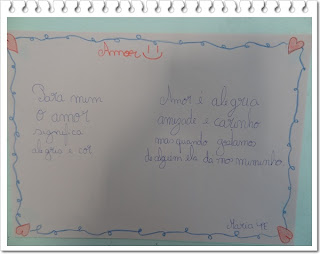 Amor
Para mim
o amor
significa
alegria e cor
Amor é alegria
amizade e carinho
mas quando gostamos
de alguém ele dá-nos miminho
Maria 4E